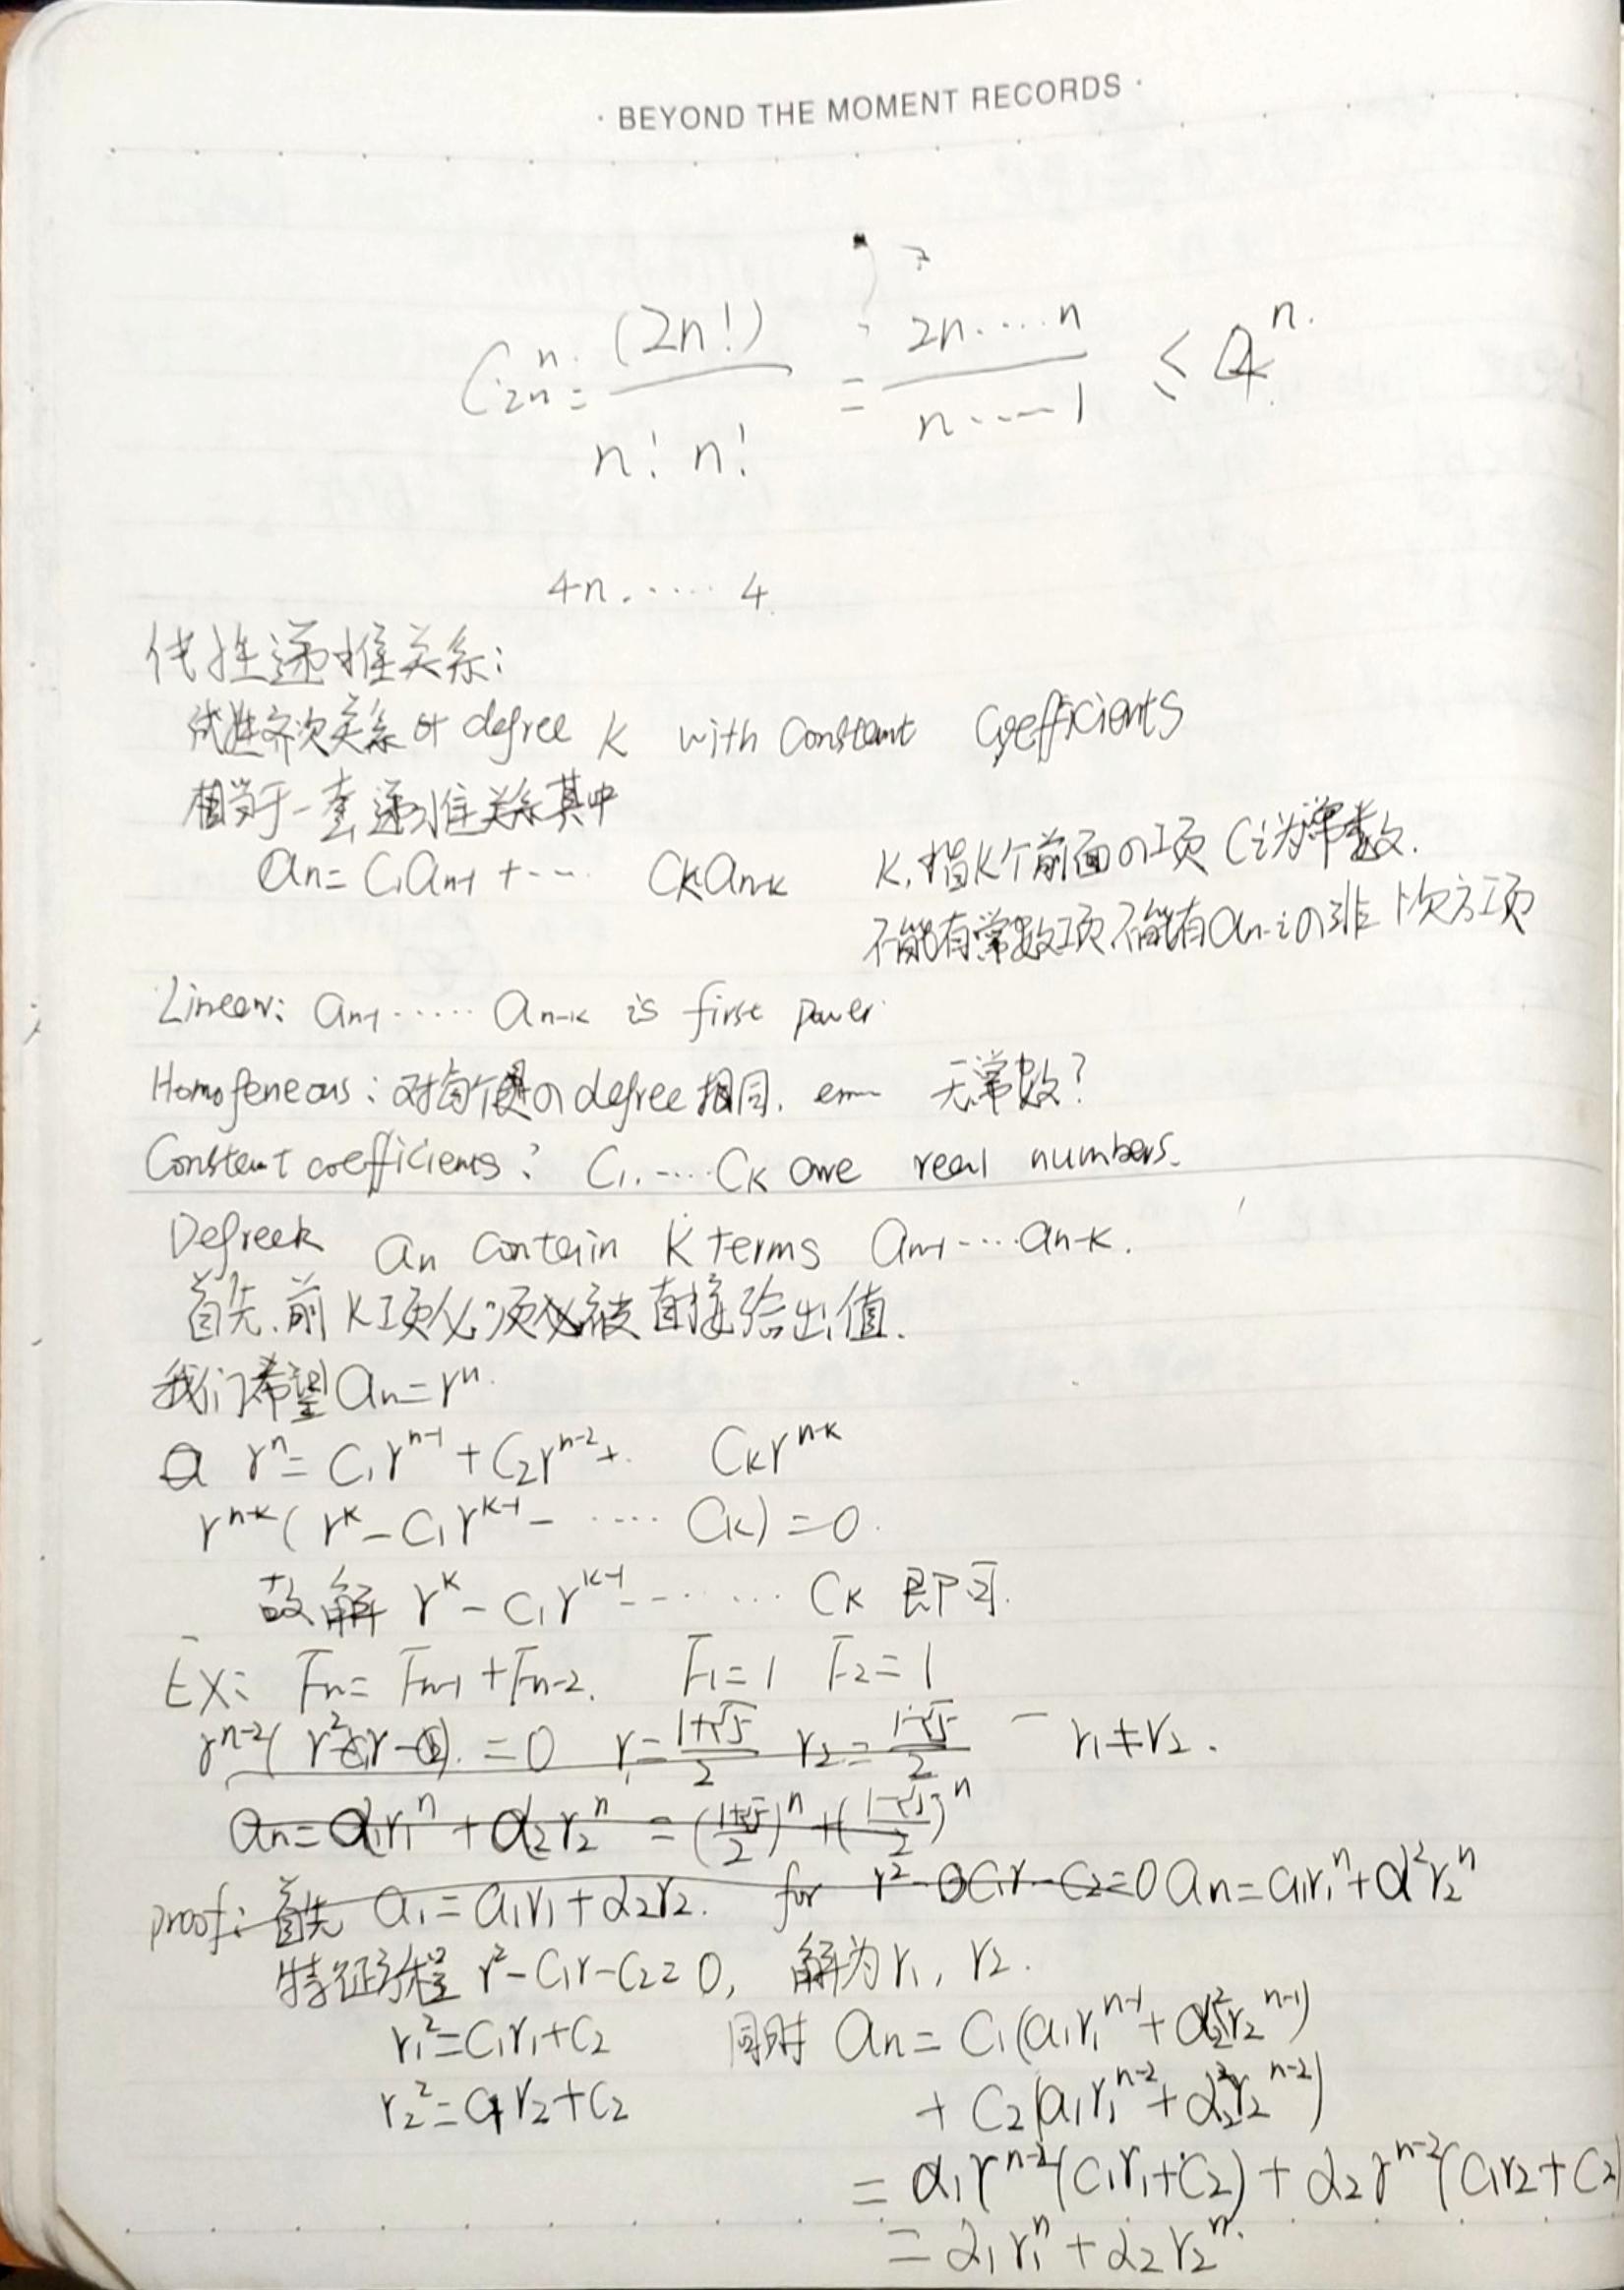 · BEYOND THE MOMENT RECORDS ·
C₂ₙⁿ = (2n!) / n! n! = 2n·····n / n·····1 ≤ 4ⁿ.
4n.·····4
线性递推关系:
线性齐次关系 of degree k with constant coefficients
相当于一套递推关系其中
aₙ = C₁aₙ₋₁ + ··· Cₖaₙ₋ₖ k,指k个前面の项 Cᵢ为常数.
不能有常数项不能有aₙ₋ᵢの非1次方项
Linear: aₙ₋₁ ······ aₙ₋ₖ is first power
Homogeneous: 对每个の degree 相同. em 无常数?
Constant coefficients: C₁.····Cₖ are real numbers.
Degreek aₙ contain k terms aₙ₋₁····aₙ₋ₖ.
首先.前k项必须被直接给出值.
我们希望 aₙ = rⁿ.
rⁿ = C₁rⁿ⁻¹ + C₂rⁿ⁻² + Cₖrⁿ⁻ᵏ
rⁿ⁻ᵏ(rᵏ - C₁rᵏ⁻¹ - ···· Cₖ) = 0.
故解 rᵏ - C₁rᵏ⁻¹ - ······ Cₖ 即可.
Ex: Fₙ = Fₙ₋₁ + Fₙ₋₂. F₁ = 1 F₂ = 1
rⁿ⁻²(r² - C₁r - C₂) = 0 r₁ = (1+√5)/2 r₂ = (1-√5)/2 r₁ ≠ r₂.
aₙ = α₁r₁ⁿ + α₂r₂ⁿ = ((1+√5)/2)ⁿ + ((1-√5)/2)ⁿ
proof: 首先 a₁ = a₁r₁ + α₂r₂. for r² - C₁r - C₂ = 0 aₙ = a₁r₁ⁿ + α²r₂ⁿ
特征方程 r² - C₁r - C₂ = 0, 解为 r₁, r₂.
r₁² = C₁r₁ + C₂ 同时 aₙ = C₁(a₁r₁ⁿ⁻¹ + α₂r₂ⁿ⁻¹)
r₂² = C₁r₂ + C₂ + C₂(a₁r₁ⁿ⁻² + α₂r₂ⁿ⁻²)
= α₁rⁿ⁻²(C₁r₁ + C₂) + α₂rⁿ⁻²(C₁r₂ + C₂
= α₁r₁ⁿ + α₂r₂ⁿ.